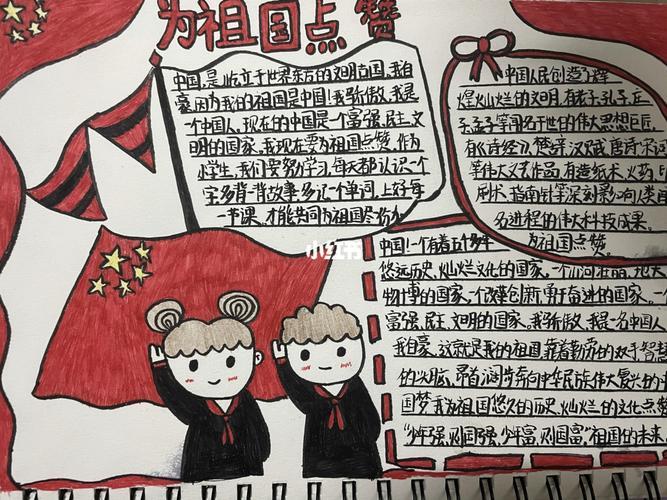 为祖国点赞
中国,是屹立于世界东方的文明古国,我自
豪,因为我的祖国是中国!我骄傲,我是
一个中国人。现在的中国是一个富强、民主、文
明的国家。我现在要为祖国点赞。作为
小学生,我们要努力学习,每天都认识一个
字,多背一背故事,多记一个单词,上好每
一节课。才能共同为祖国尽份力
中国人民创造了辉
煌灿烂的文明,有老子、孔子、庄
子、孟子等闻名于世的伟大思想巨匠,
有《诗经》、楚辞、汉赋、唐诗、宋词
等伟大文艺作品,有造纸术、火药、印
刷术、指南针等深刻影响人类
名进程的伟大科技成果。
为祖国点赞。
中国!一个有着五千多年
悠远历史,灿烂文化的国家。一个山河壮丽,地大
物博的国家,一个改革创新,勇于奋进的国家。一个
富强、民主、文明的国家。我骄傲,我是一名中国人
我自豪,这就是我的祖国,靠着勤劳的双手,智慧
的头脑,昂首阔步奔向中华民族伟大复兴的
国梦,我为祖国悠久的历史,灿烂的文化点赞
“少年强,则国强,少年富,则国富”祖国的未来
小红书